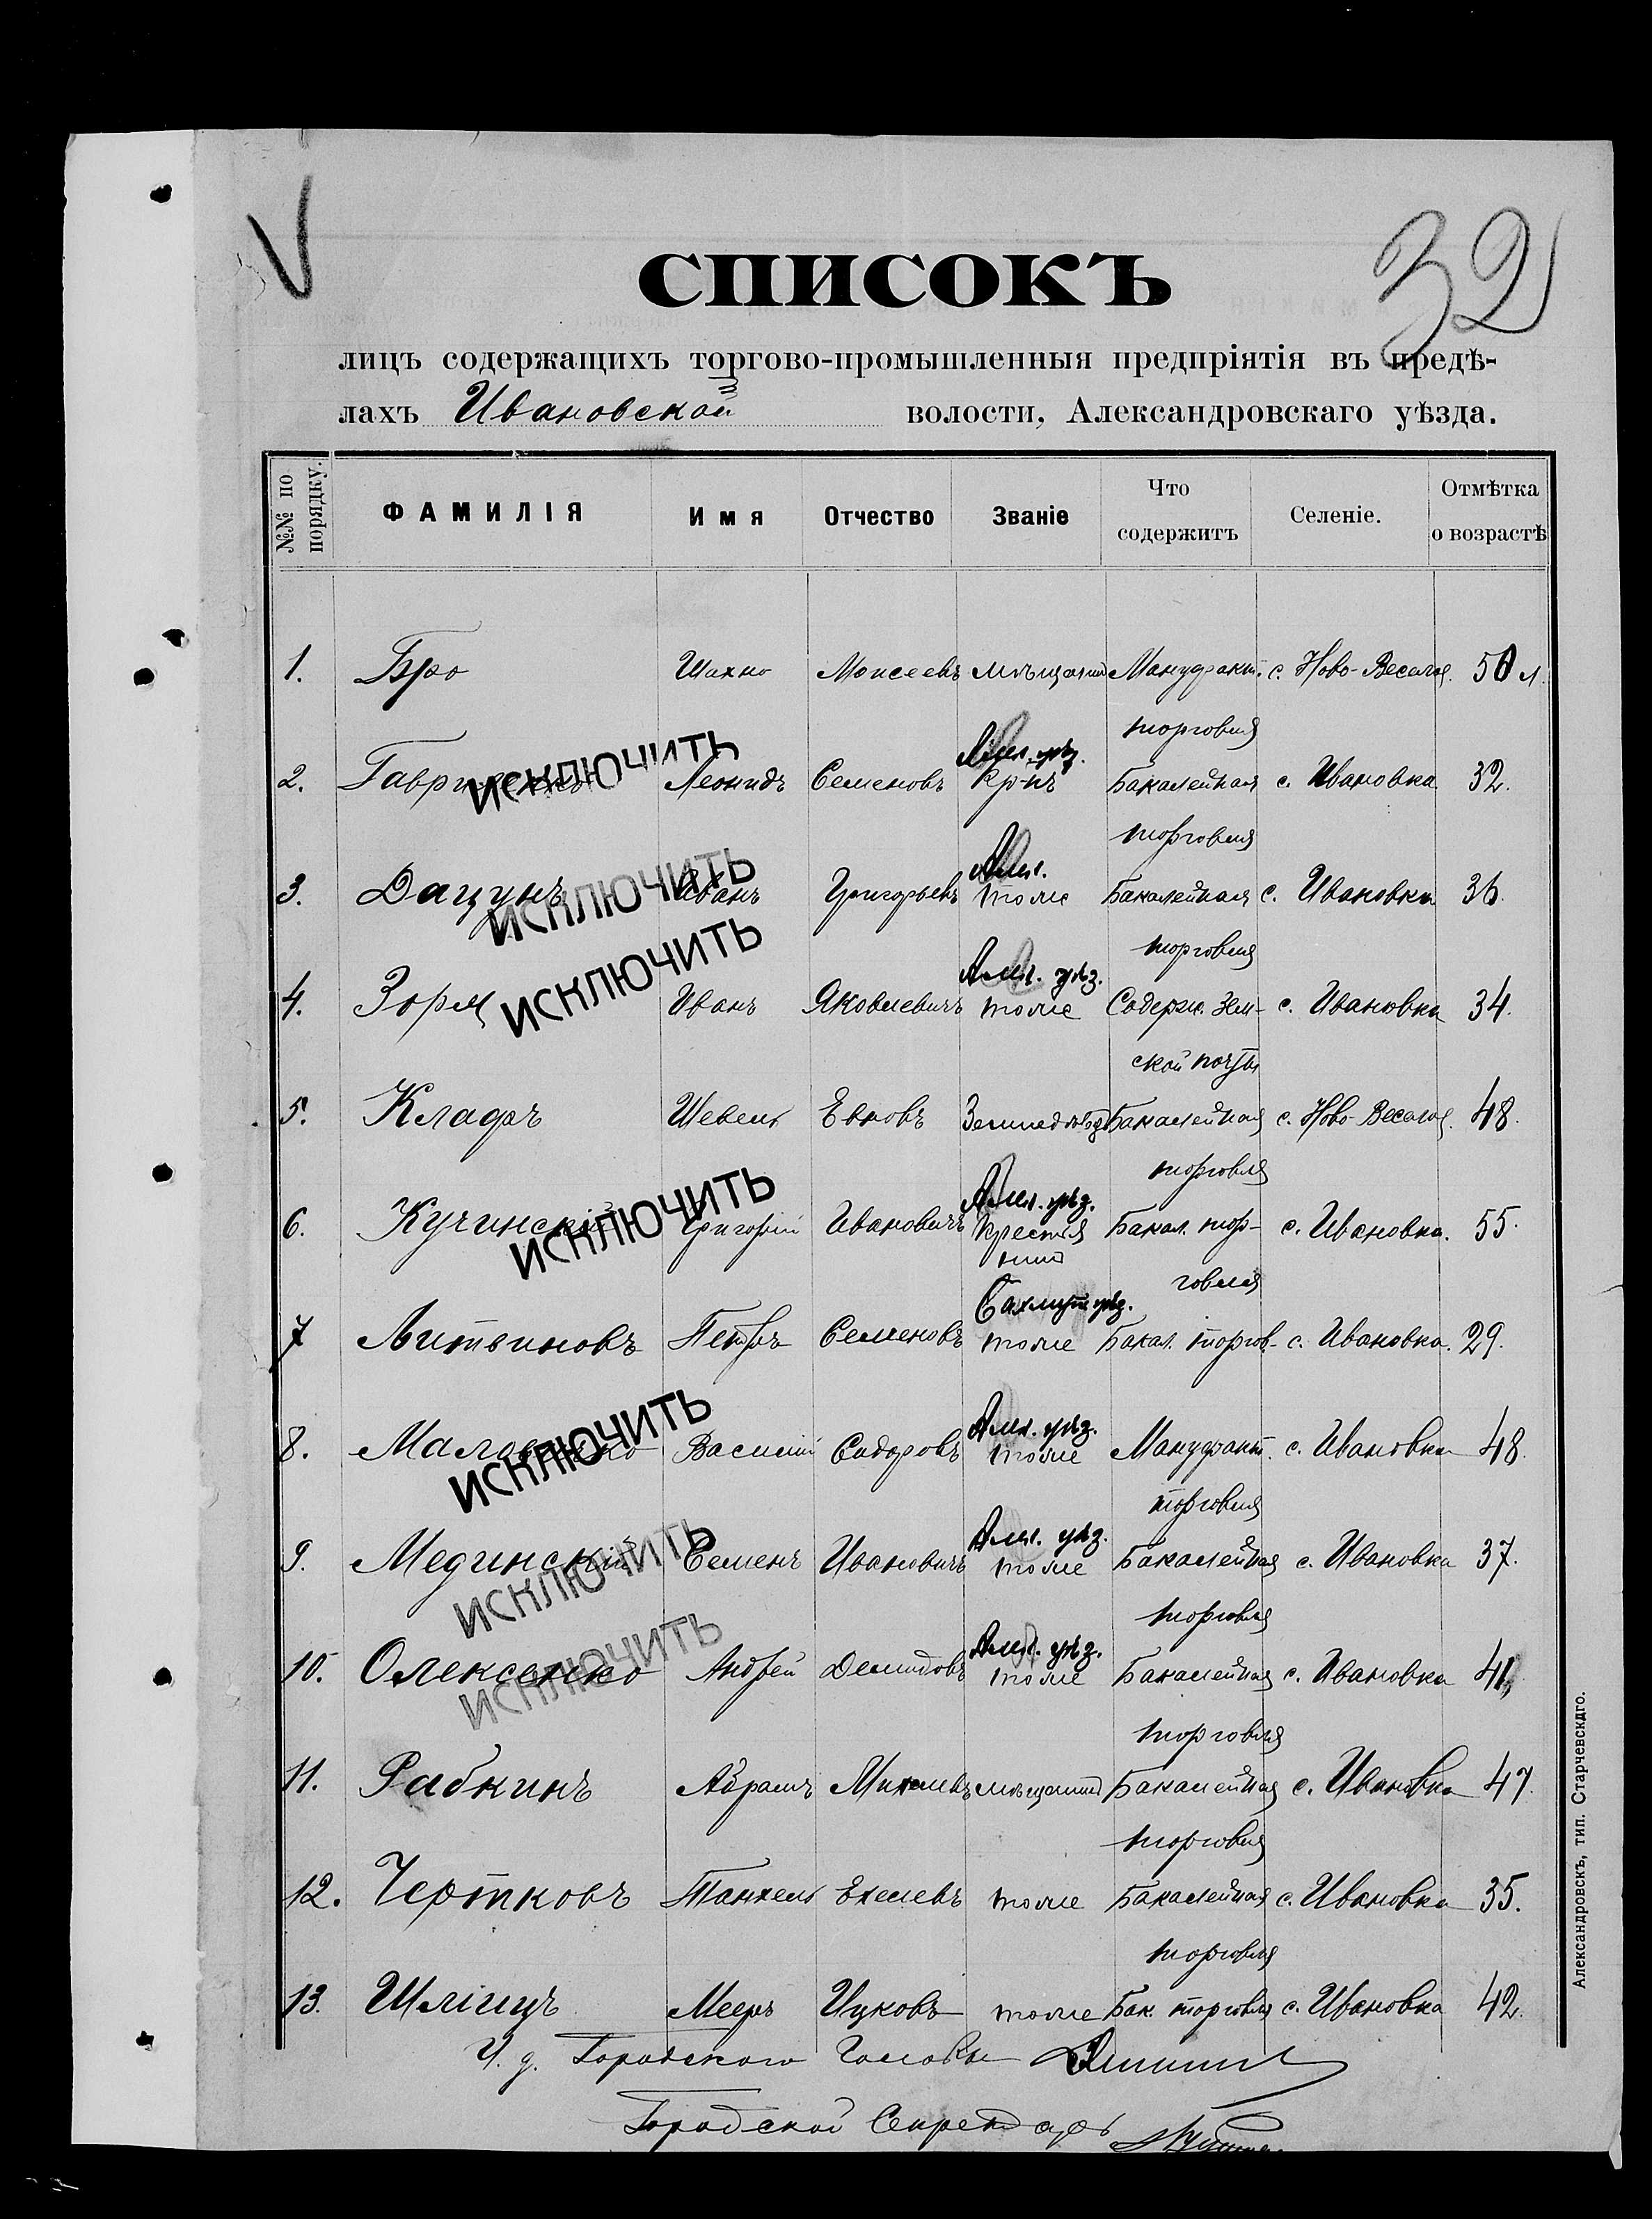 32
СПИСОКЪ
лицъ содержащихъ торгово-промышленныя предпріятія въ предѣ-
лахъ Ивановской волости, Александровскаго уѣзда.
№№ по порядку. ФАМИЛІЯ Имя Отчество Званіе Что содержитъ Селеніе. Отмѣтка о возрастѣ
1. Бро Шахно Моисеевъ мѣщанин Мануфакт. с. Ново-Веселое. 50 л.
торговля
Алек. уѣз.
2. ИСКЛЮЧИТЬ Леонидъ Семеновъ кр-нъ Бакалейная с. Ивановка 32.
торговля
Алек.
3. Дацунъ ИСКЛЮЧИТЬ Иванъ Григорьевъ тоже Бакалейная с. Ивановка 36.
торговля
Алек. уѣз.
4. Зоря ИСКЛЮЧИТЬ Иванъ Яковлевичъ тоже Содерж. Зем- с. Ивановка 34.
ской почты
5. Шевель Евновъ Бакалейная с. Ново-Веселое. 48.
торговля
Алек. уѣз.
6. Кучинскій ИСКЛЮЧИТЬ Григорій Ивановичъ Крестья Бакал. тор- с. Ивановка. 55.
нин говля
Бахмут. уѣз.
7 Литвиновъ Петръ Семеновъ тоже Бакал. торгов.- с. Ивановка. 29.
Алек. уѣз.
8. ИСКЛЮЧИТЬ Василій Сидоровъ тоже Мануфакт. с. Ивановка 48.
торговля
Алек. уѣз.
9. Мединскій ИСКЛЮЧИТЬ Семенъ Ивановичъ тоже Бакалейная с. Ивановка 37.
торговля
Алек. уѣз.
10. Олексенко ИСКЛЮЧИТЬ Андрей Демидовъ тоже Бакалейная с. Ивановка 41,
торговля
11. Рабкинъ Абрамъ мѣщанин Бакалейная с. Ивановка 47.
торговля
12. Чертковъ Танхель Ехелевъ тоже Бакалейная с. Ивановка 35.
торговля
13. Мееръ Ицковъ тоже Бак. торговля с. Ивановка 42.
И. д. Городского Головы
Городской Секретарь
Александровскъ, тип. Старчевскдго.